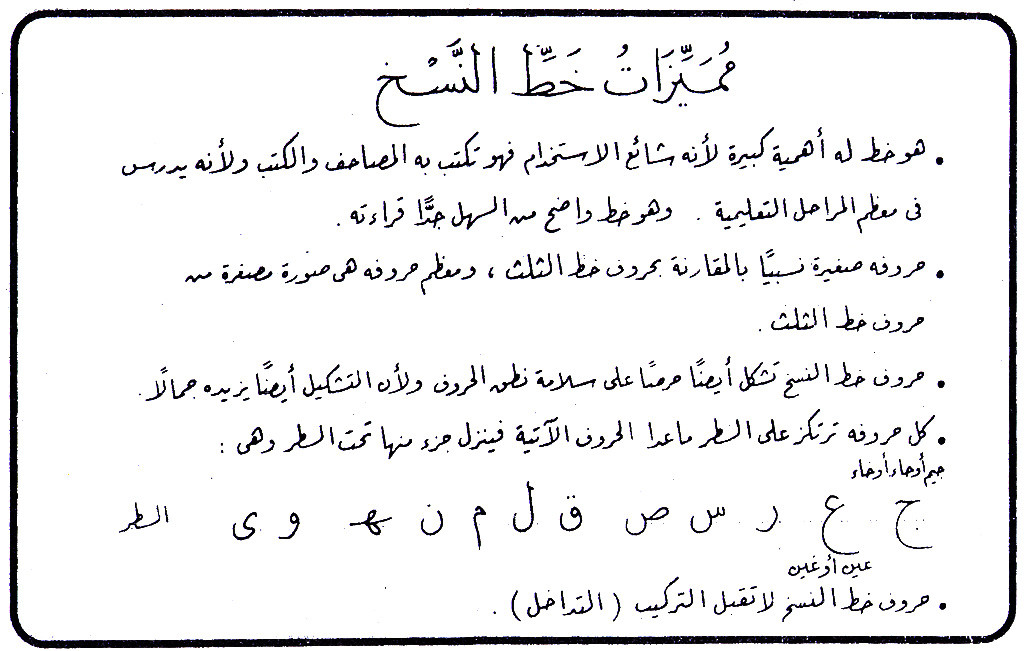 مُمَيِّزَاتُ خَطِّ النَّسْخ
• هو خط له أهمية كبيرة لأنه شائع الاستخدام فهو تكتب به المصاحف والكتب ولأنه يدرس
فى معظم المراحل التعليمية . وهو خط واضح من السهل جدًّا قراءته .
• حروفه صغيرة نسبيًّا بالمقارنة بحروف خط الثلث ، ومعظم حروفه هى صورة مصغرة من
حروف خط الثلث .
• حروف خط النسخ تشكل أيضًا حرصًا على سلامة نطق الحروف ولأن التشكيل أيضًا يزيده جمالًا .
• كل حروفه ترتكز على السطر ماعدا الحروف الآتية فينزل جزء منها تحت السطر وهى :
جيم أوحاء أوخاء
ح ع ر س ص ق ل م ن ه و ى السطر
عين أوغين
• حروف خط النسخ لا تقبل التركيب ( التداخل ) .